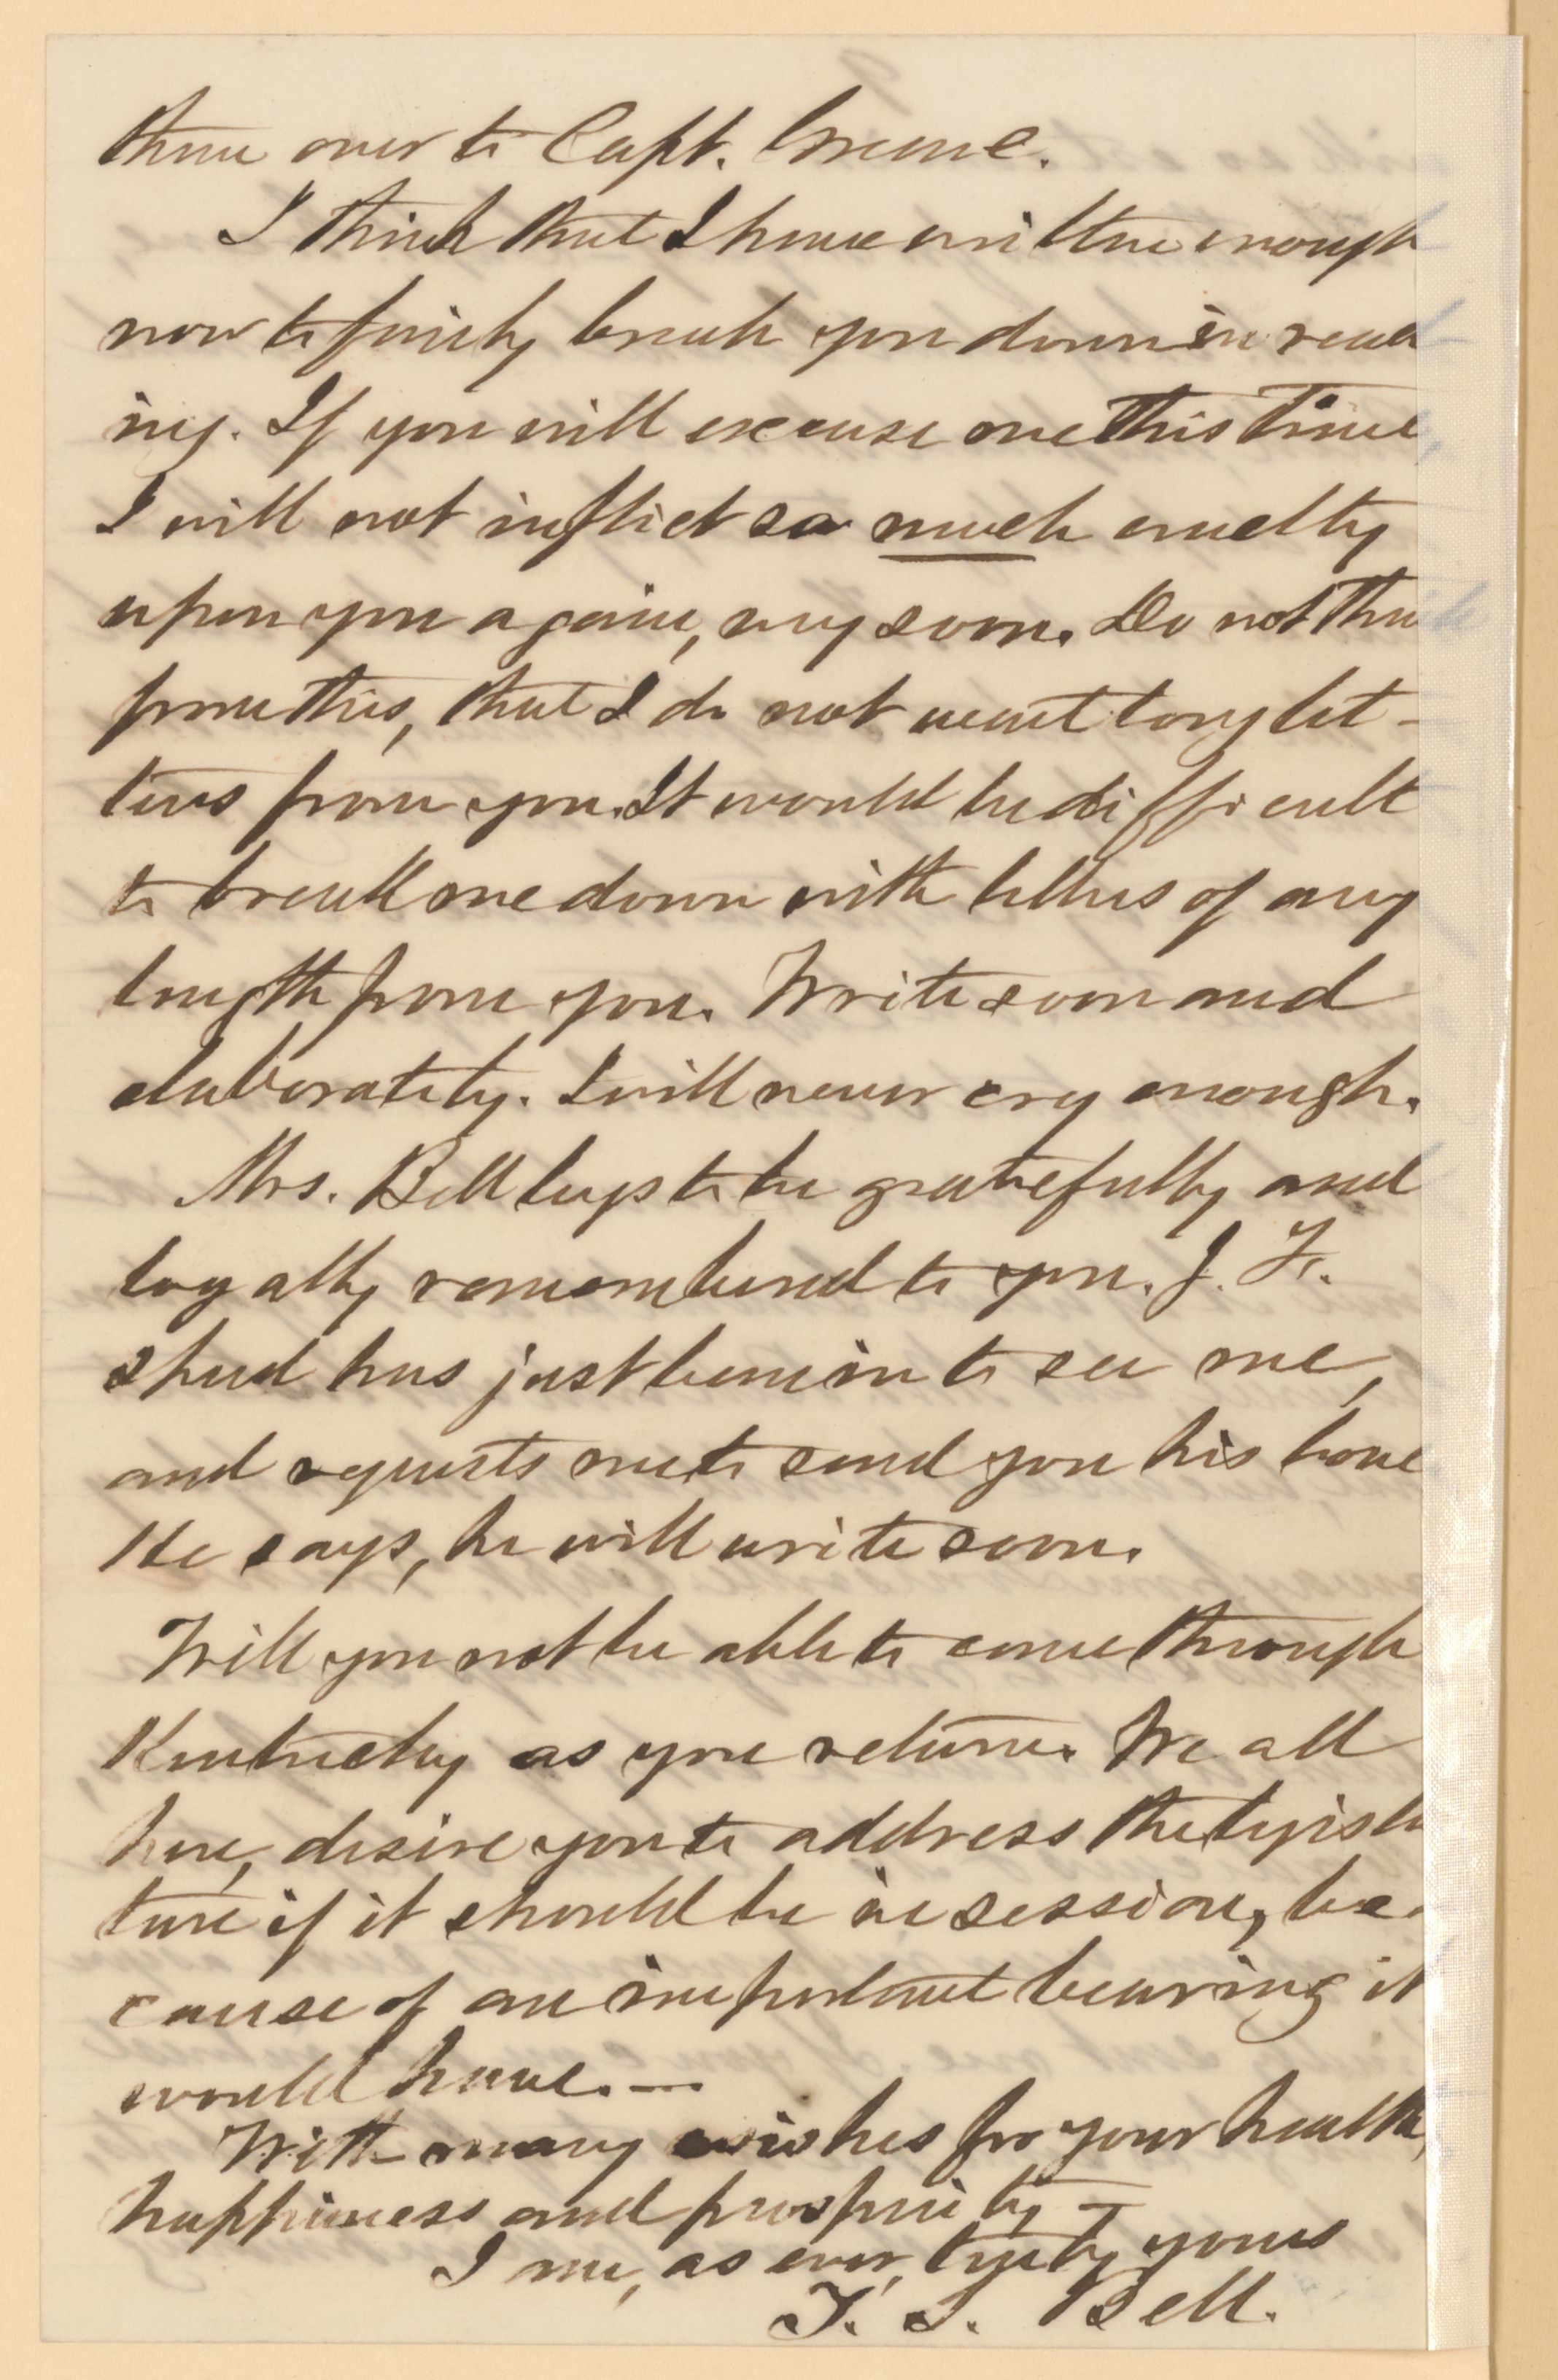 them over to Capt. Greene.
I think that I have written enough
now to fairly break you down in read
ing. If you will excuse me this time
I will not inflict so much cruelty
upon you again, very soon. Do not thin
from this, that I do not want long let-
ters from you. It would be difficult
to break me down with letters of any
length from you. Write soon and
elaborately. I will never cry enough.
Mrs. Bell begs to be gratefully and
loyally remembered to you. J. F.
Speed has just been in to see me,
and requests me to send you his love
He says, he will write soon.
Will you not be able to come through
Kentucky as you return. We all
here, desire you to address the Legisla
ture if it should be in session, be-
cause of an important bearing it
would have. —
With many wishes for your health,
happiness and prosperity —
I am, as ever, truly yours
T. S. Bell.